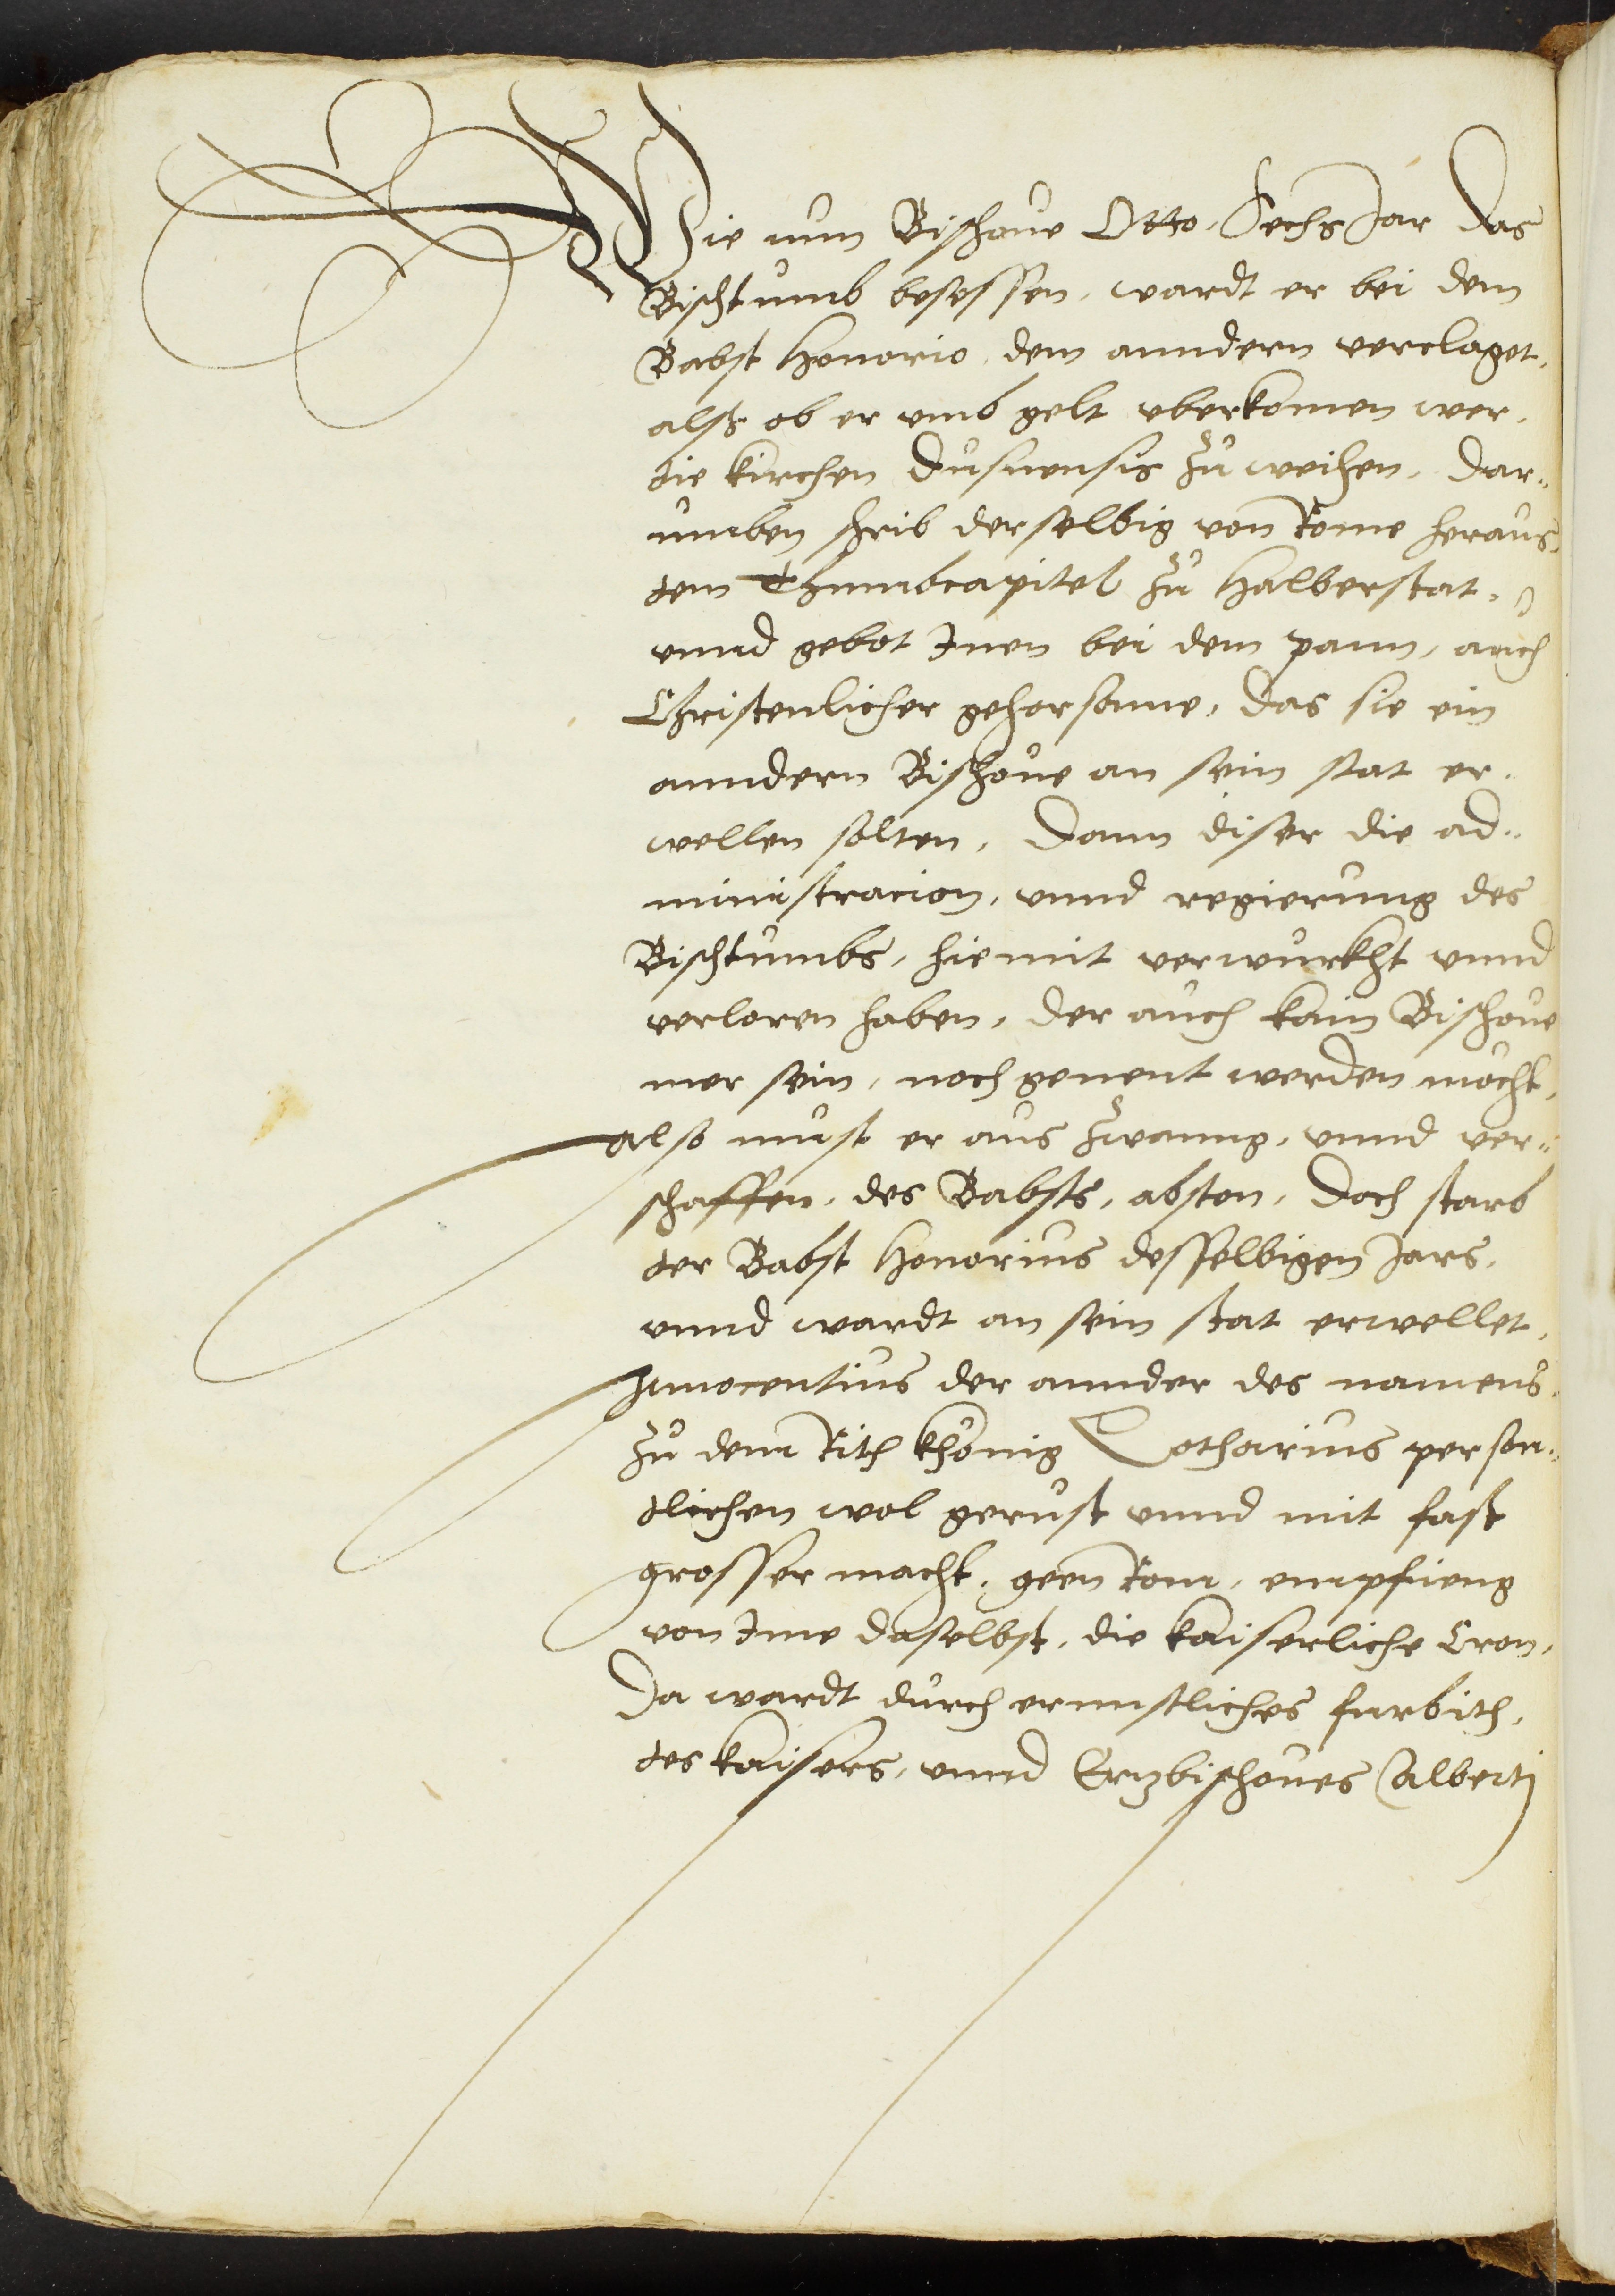 Wie nun Bischoue Otto, Sechs Jar das
Bischtumb besessen, wardt er bei dem
Babst Honorio, dem anndern verclaget,
alß ob er vmb gelt vberkomen wer,
die kirchen Dusnensis zu weihen, dar¬
umben schrib derselbig von Rome heraus,
dem Thumbcapitel zu Halberstat,
vnnd gebot Inen bei dem pann, auch
Christenlicher gehorsame, das sie ein
anndern Bischoue an sein stat er¬
wellen solten, dann diser die ad¬
ministracion, vnnd regierung des
Bischtumbs, hiemit verwurkht vnnd
verloren haben, der auch kain Bischoue
mer sein, noch genent werden möcht,
also must er aus zwanng, vnnd ver¬
schaffen, des Babsts, absten, doch starb
der Babst Honorius desselbigen Jars,
vnnd wardt an sein stat erwellet,
Innocentius der annder des namens,
zu dem Rith khönig Lotharius person¬
dlichen wol gerust vnnd mit fast
grosser macht, geen Rom, empfieng
von Ime daselbst, die kaiserliche Cron,
Da wardt durch ernnstliches furbith,
des kaisers, vnnd Ertzbischoues Alberti